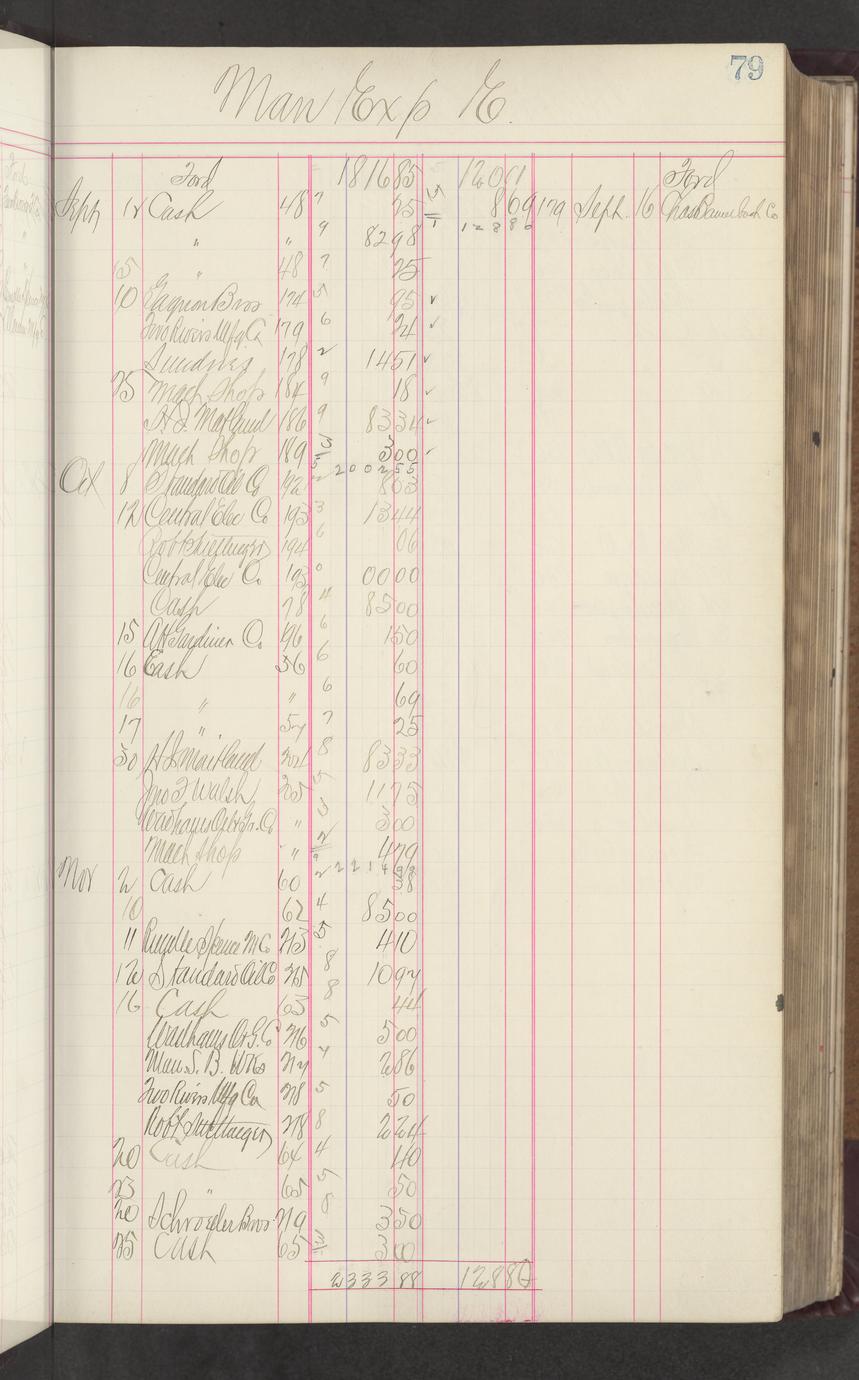 79
Man Exp E.
Ford 1816 85 12 01 Ford
Sept 12 Cash 48 7 25 8 69 179 Sept. 16 Chas Bauerbach Co
" " 9 82 98 128 80
15 " 48 7 25
10 Gagnon Bros 174 5 95 ✓
Two Rivers Mfg Co 179 6 24 ✓
Sundries 178 2 14 51 ✓
25 Mach Shop 184 9 18 ✓
H. S. Maitland 186 9 83 34 ✓
Mach Shop 189 3 3 00 ✓
2002 55
Oct 8 Standard Oil Co 192 2 8 03
12 Central Elec Co 193 3 13 44
Robt 194 6 06
Central Elec Co 193 0 00 00
Cash 78 4 85 00
15 A H Gardiner Co. 96 6 1 50
16 Cash 56 6 60
16 " 6 69
17 " 57 7 25
30 H S Maitland 204 8 83 33
Jno F Walsh 205 5 11 75
Co " 3 3 00
Mach Shop " 2 4 79
2214 99
Nov 2 Cash 60 2 38
10 62 4 85 00
11 Rundle Spence M Co 213 5 4 10
12 Standard Oil Co 215 8 10 97
16 Cash 63 8 44
Co 216 5 5 00
Man. S. B. Wks 217 4 2 86
Two Rivers Mfg Co 218 5 50
Robt 218 8 2 24
20 Cash 64 4 40
23 " 65 5 50
20 Schroeder Bros 219 8 3 50
25 Cash 65 3 3 00
2333 88 128 80